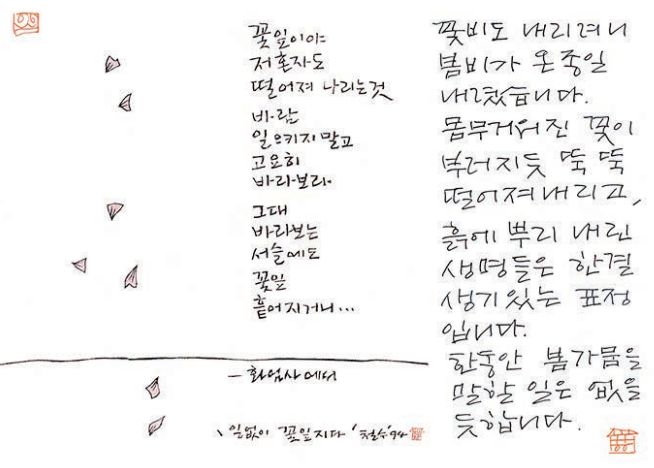 꽃잎이야
저 혼자도
떨어져 나리는것
바람
일으키지 말고
고요히
바라보라
그대
바라보는
서슬에도
꽃잎
흩어지거니...
- 화엄사에서
일없이 꽃잎지다 '철수 '94
꽃비도 내리려니
봄비가 온종일
내렸습니다.
몸무거워진 꽃이
부러지듯 뚝 뚝
떨어져 내리고,
흙에 뿌리 내린
생명들은 한결
생기있는 표정
입니다.
한동안 봄가뭄을
말할 일은 없을
듯합니다.